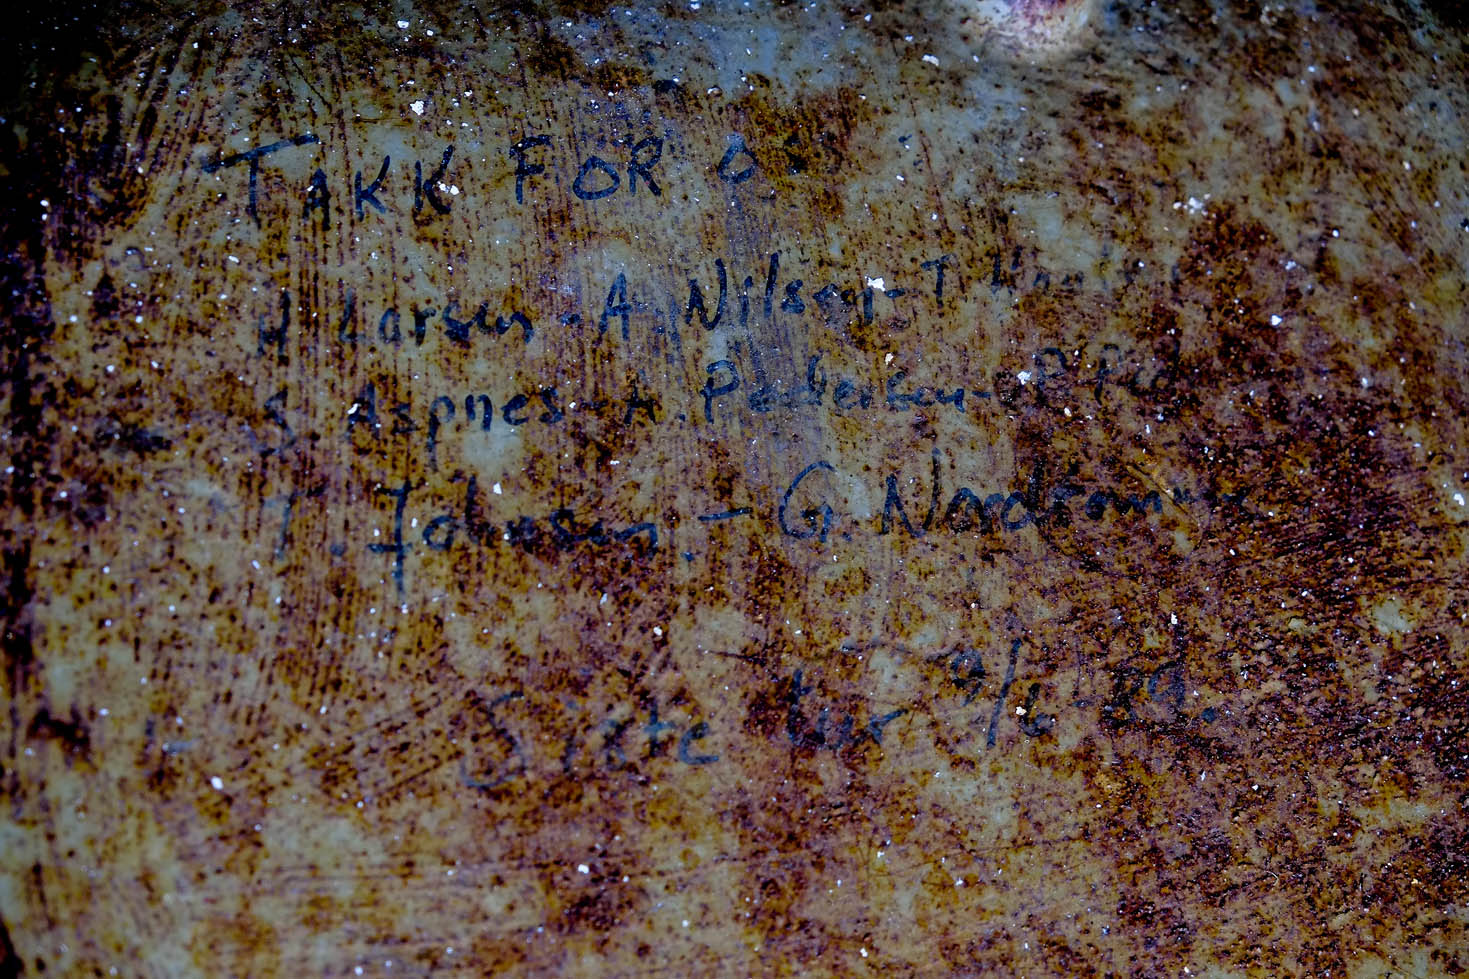 TAKK FOR
H Larsen - A. Nilsen - T
S. Aspnes - A. Pedersen -
T. Johnsen. - G. Nordrom
Siste tur 9/6